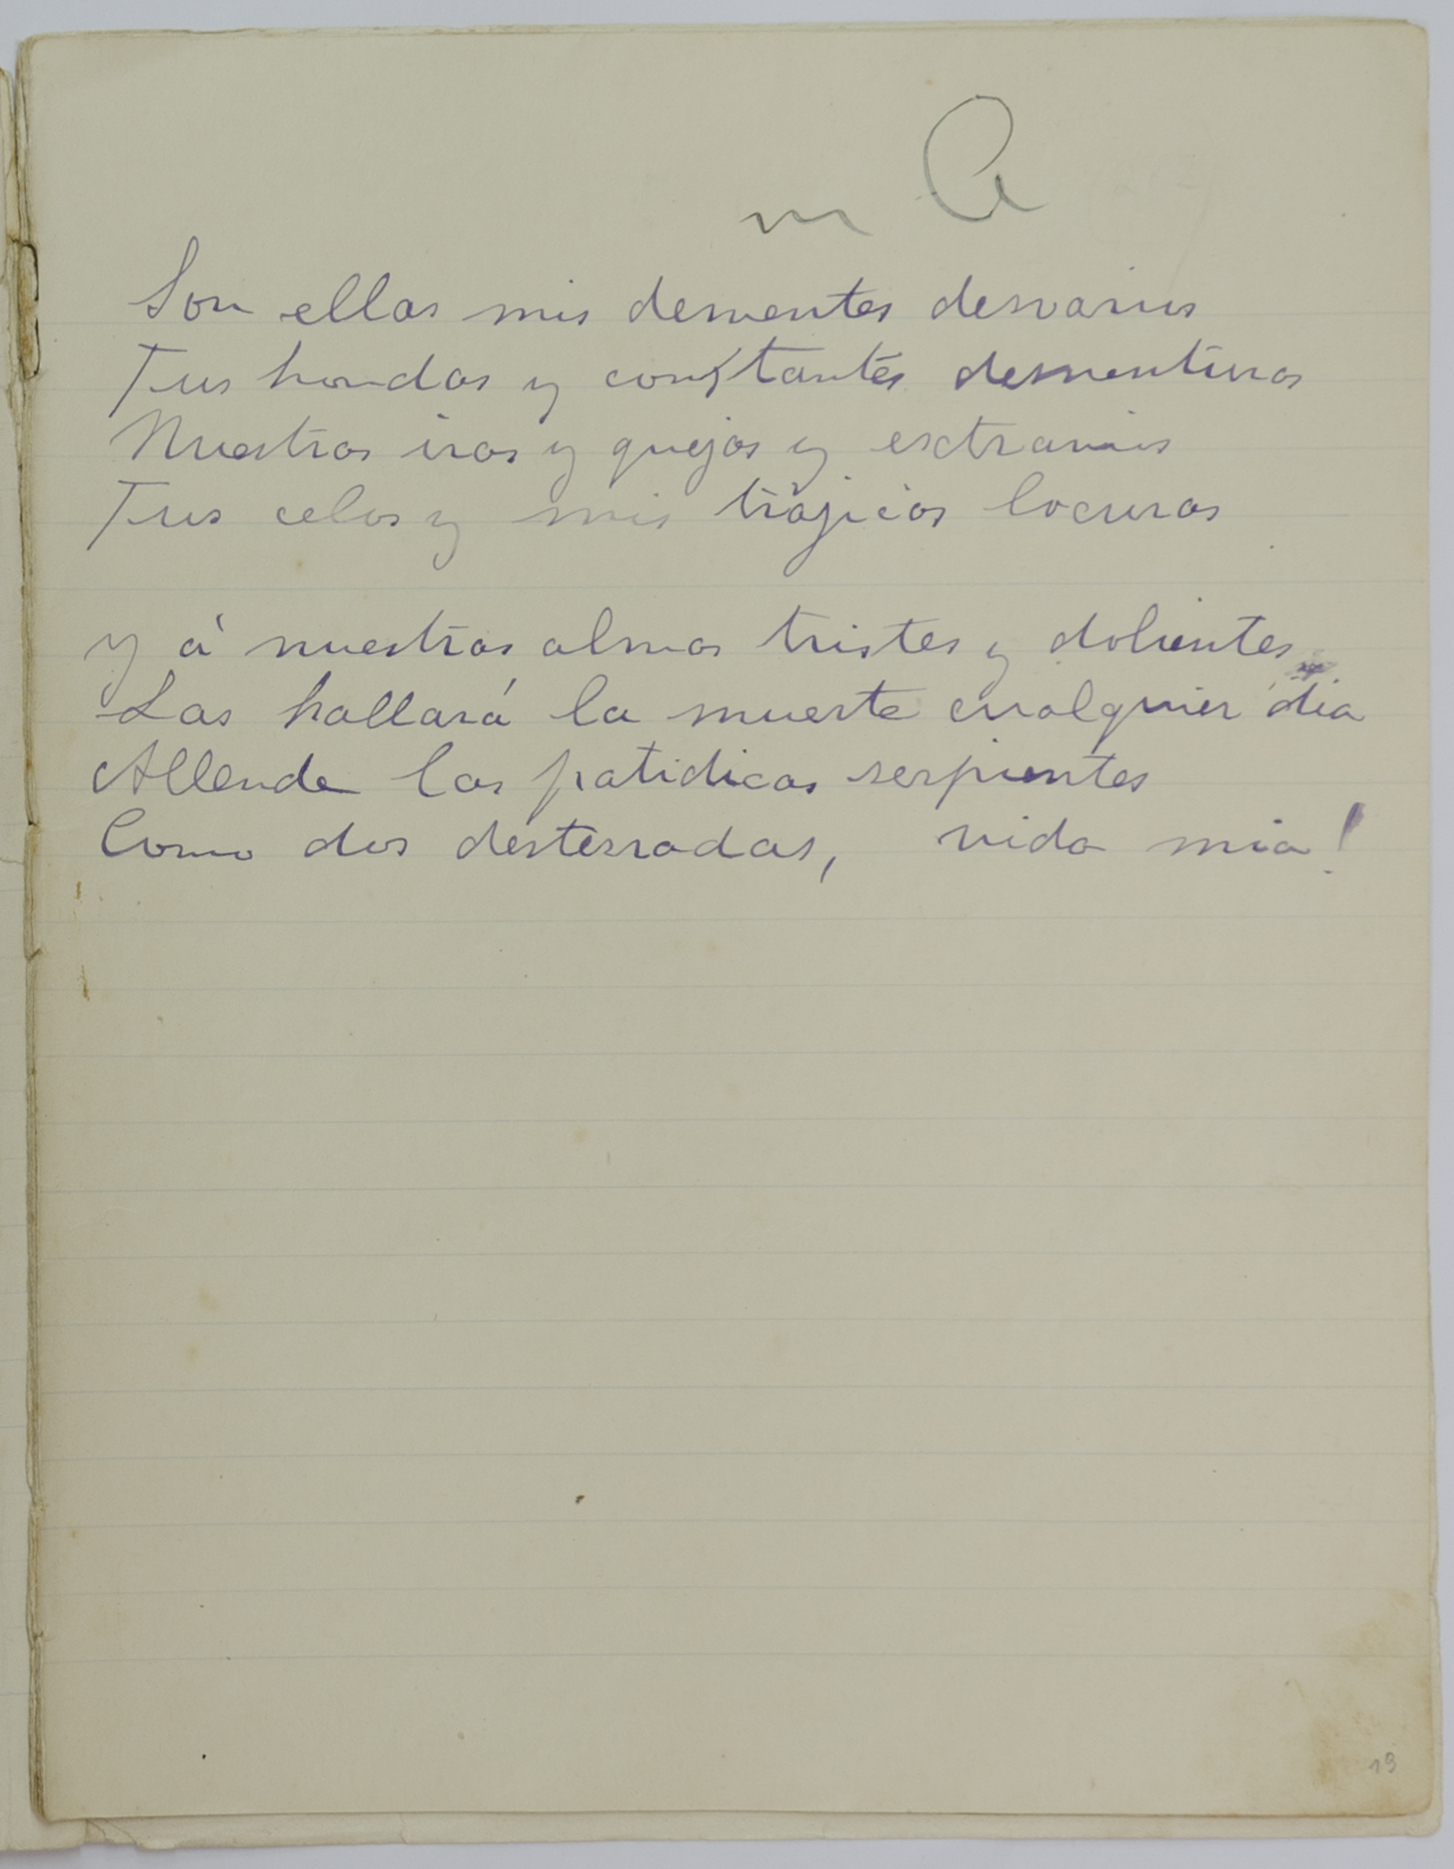 m A
Son ellas mis dementes desvarios
Tus hondas y constantes desventuras
Nuestras iras y quejas y extravios
Tus celos y mis trájicas locuras
Y á nuestras almas tristes y dolientes
Las hallará la muerte cualquier dia
Allende las fatidicas serpientes
Como dos desterradas, vida mia!
13